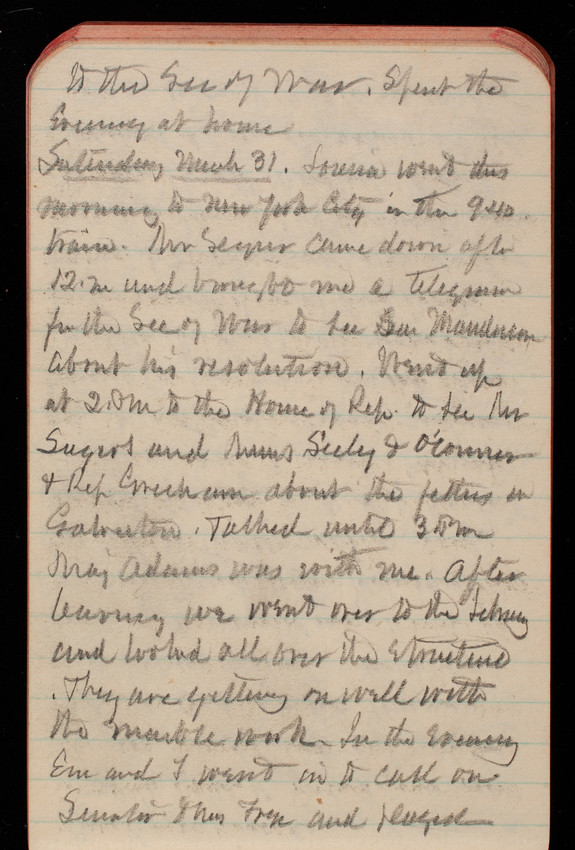 to the Sec of War. Spent the
Evening at home
Saturday March 31. Louisa went this
morning to New York City in the 940.
train. Mr Segur came down after
12. m and brought me a telegram
for the Sec of War to see Sen Manderson
about his resolution. Went up
at 2. P m to the House of Rep. to see Mr
and Seeley & O'Connor
& Rep about the jetties in
Galveston. Talked until 3 P m
Maj Adams was with me. After
leaving we went over to the Library
and looked all over the structure
. They are getting on well with
the marble work. In the Evening
Em and I went in to call on
Senator & Mrs Frye and played